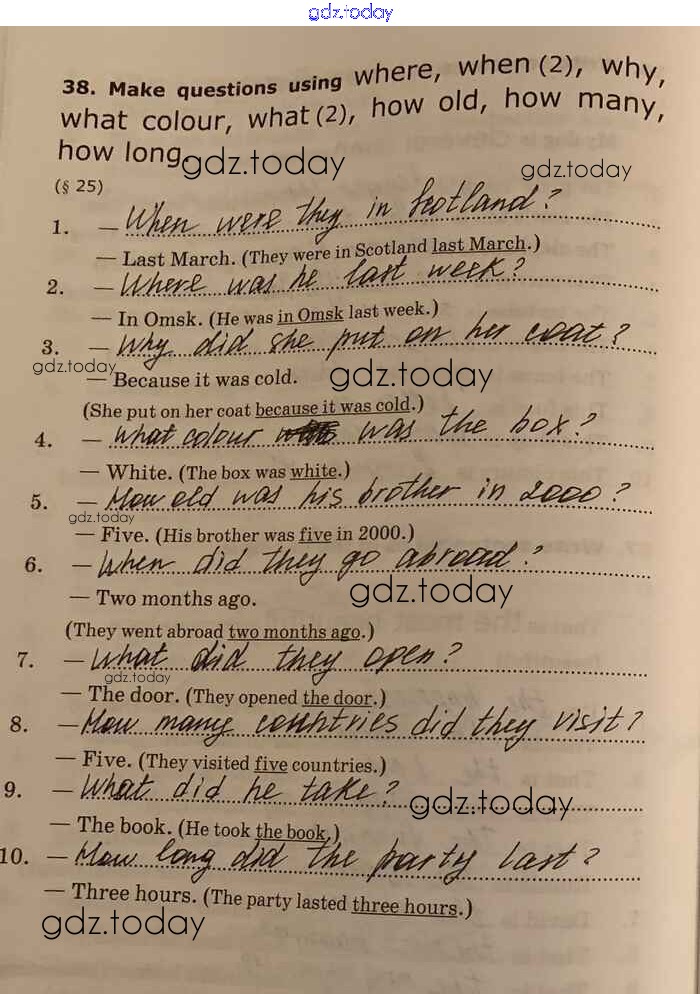 gdz.today
38. Make questions using where, when (2), why,
what colour, what (2), how old, how many,
how long.
gdz.today
gdz.today
(§ 25)
1. – When were they in Scotland?
– Last March. (They were in Scotland last March.)
2. – Where was he last week?
– In Omsk. (He was in Omsk last week.)
3. – Why did she put on her coat?
gdz.today
gdz.today
– Because it was cold.
(She put on her coat because it was cold.)
4. – What colour was the box?
– White. (The box was white.)
5. – How old was his brother in 2000?
gdz.today
– Five. (His brother was five in 2000.)
6. – When did they go abroad?
gdz.today
– Two months ago.
(They went abroad two months ago.)
7. – What did they open?
gdz.today
– The door. (They opened the door.)
8. – How many countries did they visit?
– Five. (They visited five countries.)
9. – What did he take?
gdz.today
– The book. (He took the book.)
10. – How long did the party last?
– Three hours. (The party lasted three hours.)
gdz.today